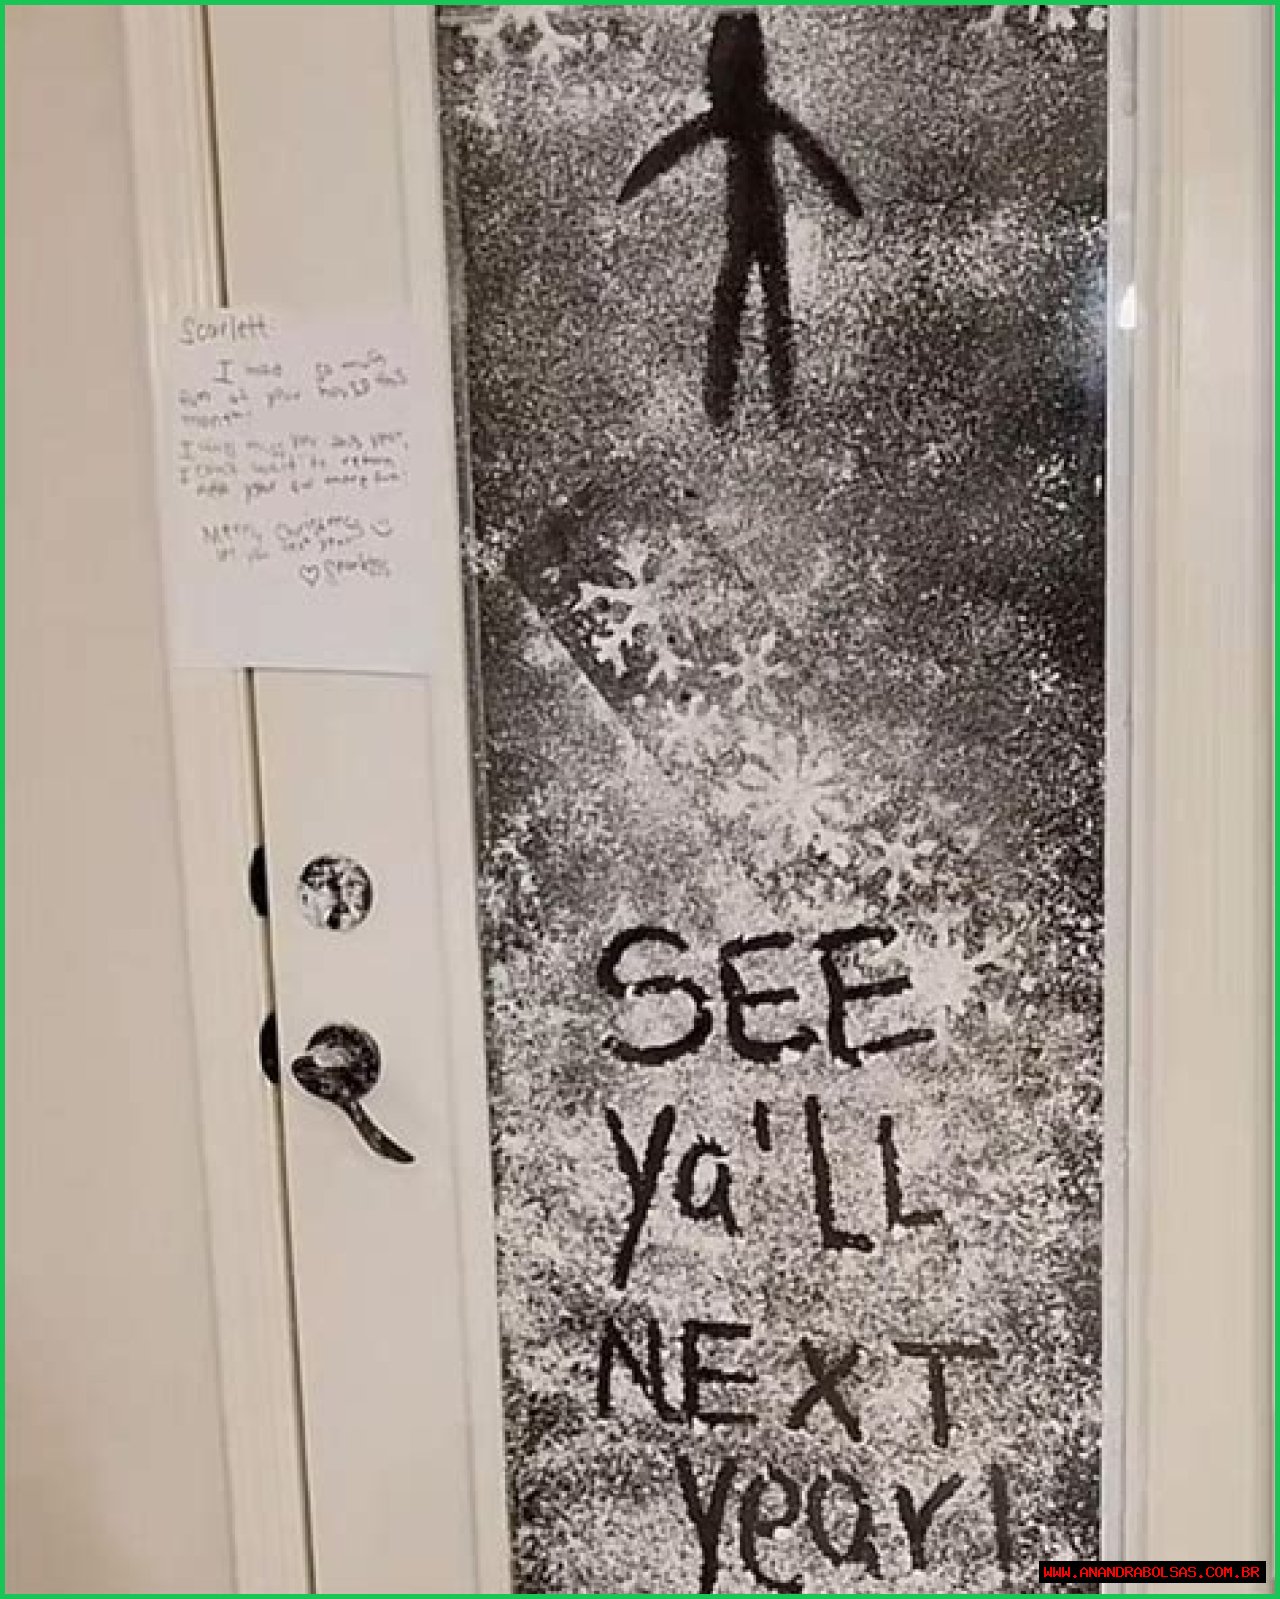 Scarlett
I had so much
fun at your house this
month!
I will miss you this year,
I can't wait to return
next year for more fun!
Merry Christmas
see you next year
♡ Sparkles
SEE
ya'LL
NEXT
year!
WWW.ANANDRABOLSAS.COM.BR